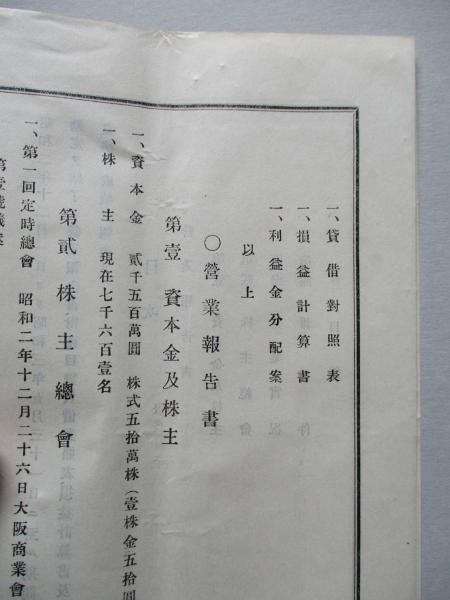 一、貸借對照表
一、損益計算書
一、利益金分配案
以上
〇營業報告書
第壹 資本金及株主
一、資本金 貳千五百萬圓 株式五拾萬株(壹株金五拾圓
一、株主 現在七千六百壹名
第貳 株主總會
一、第一回定時總會 昭和二年十二月二十六日大阪商業會
第壹號議案